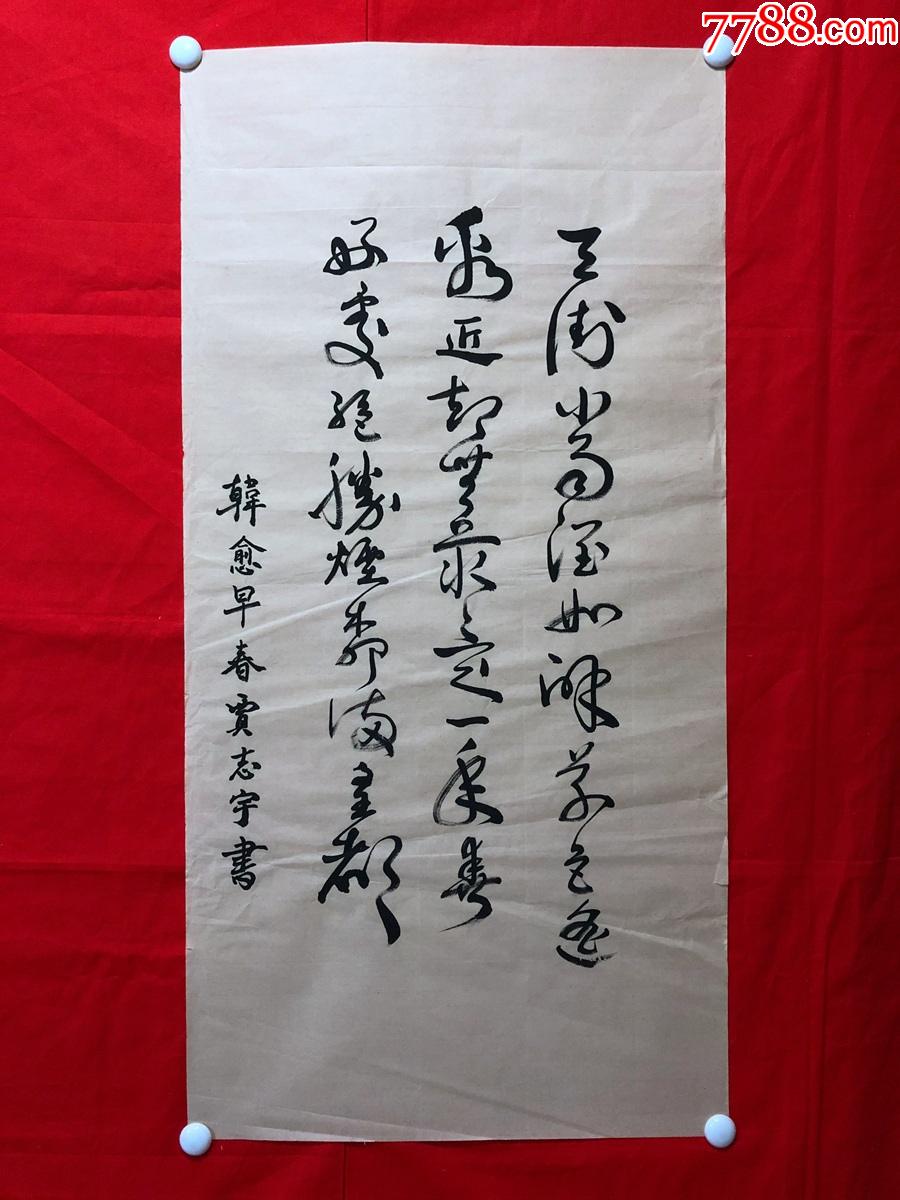 7788.com
天街小雨潤如酥草色遙
看近却無最是一年春
好處絕勝煙柳滿皇都
韓愈早春賈志宇書